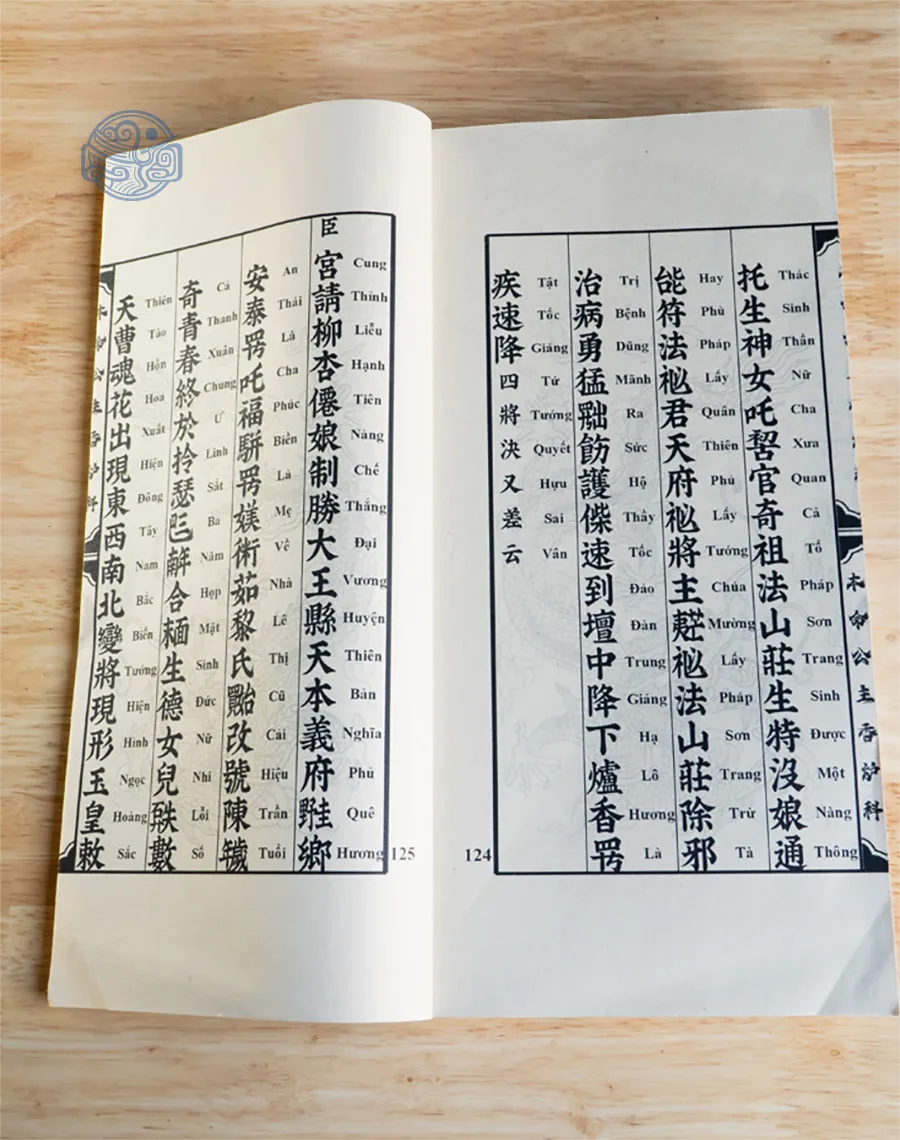 托生神女吒官奇祖法山莊生特沒娘通
Thác Sinh Thần Nữ Cha Xưa Quan Cả Tổ Pháp Sơn Trang Sinh Được Một Nàng Thông
能符法𥙩君天府𥙩將主𥙩法山莊除邪
Hay Phù Pháp Lấy Quân Thiên Phủ Lấy Tướng Chúa Mường Lấy Pháp Sơn Trang Trừ Tà
治病勇猛𦋦飭護偨速到壇中降下爐香𱺵
Trị Bệnh Dũng Mãnh Ra Sức Hộ Thầy Tốc Đáo Đàn Trung Giáng Hạ Lô Hương Là
疾速降四將決又差云
Tật Tốc Giáng Tứ Tướng Quyết Hựu Sai Vân
124
臣
宮請柳杏僊娘制勝大王縣天本義府鄉
Cung Thỉnh Liễu Hạnh Tiên Nàng Chế Thắng Đại Vương Huyện Thiên Bản Nghĩa Phủ Quê Hương
安泰𱺵吒福駢𱺵媄術茹黎氏改號陳
An Thái Là Cha Phúc Biền Là Mẹ Về Nhà Lê Thị Cũ Cải Hiệu Trần Tuổi
奇青春終於拎瑟𠀧合𩈘生德女兒數
Cả Thanh Xuân Chung Ư Linh Sắt Ba Năm Hợp Mặt Sinh Đức Nữ Nhi Lỗi Số
天曹魂花出現東西南北變將現形玉皇敕
Thiên Tào Hồn Hoa Xuất Hiện Đông Tây Nam Bắc Biến Tướng Hiện Hình Ngọc Hoàng Sắc
125
本命公主香炉科